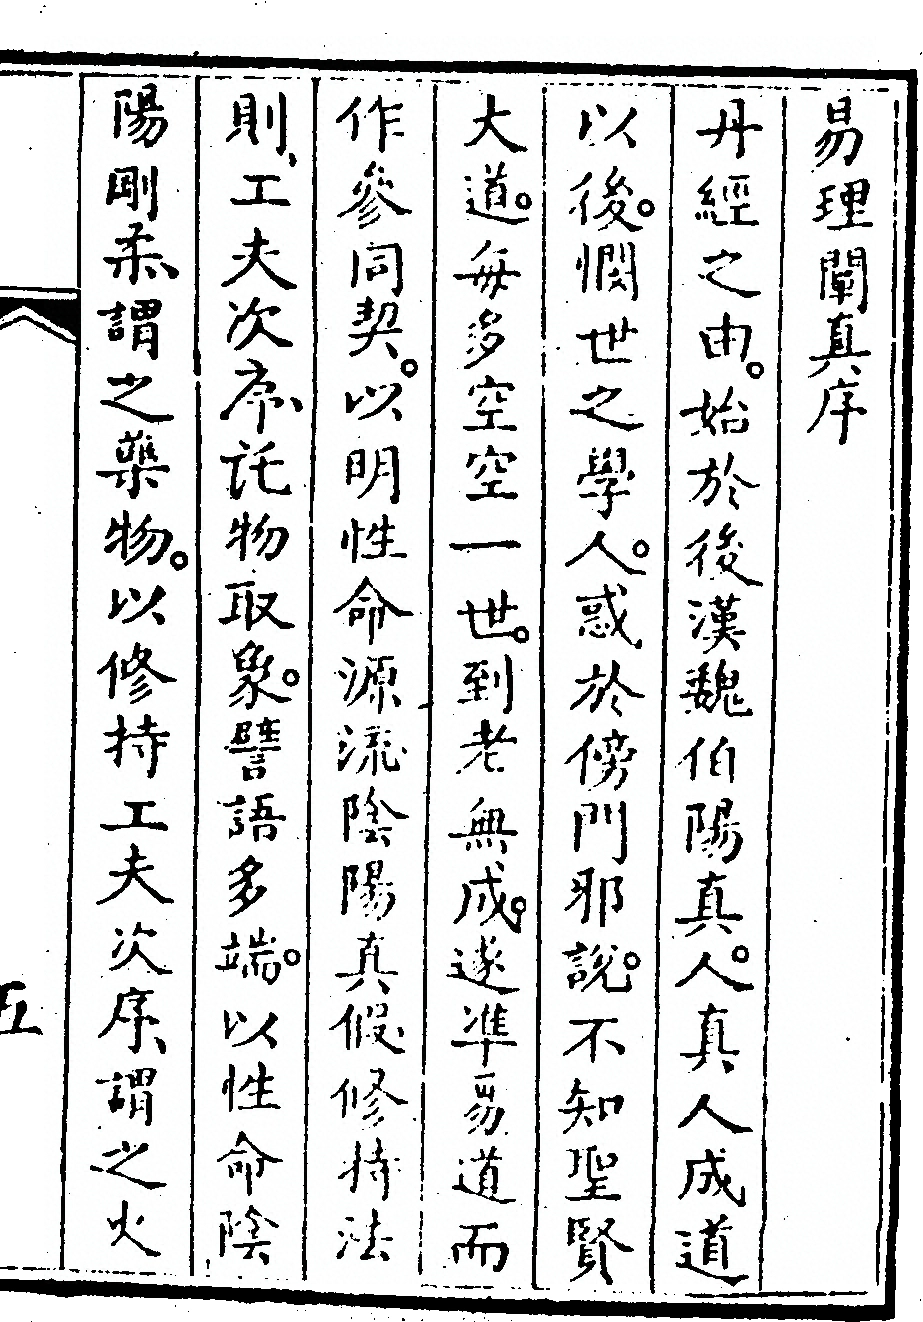 易理闡真序
丹經之由。始於後漢魏伯陽真人。真人成道
以後。憫世之學人。惑於傍門邪說。不知聖賢
大道。每多空空一世。到老無成。遂準易道而
作參同契。以明性命源流陰陽真假修持法
則、工夫次序、託物取象。譬語多端。以性命陰
陽剛柔、謂之藥物。以修持工夫次序、謂之火
五